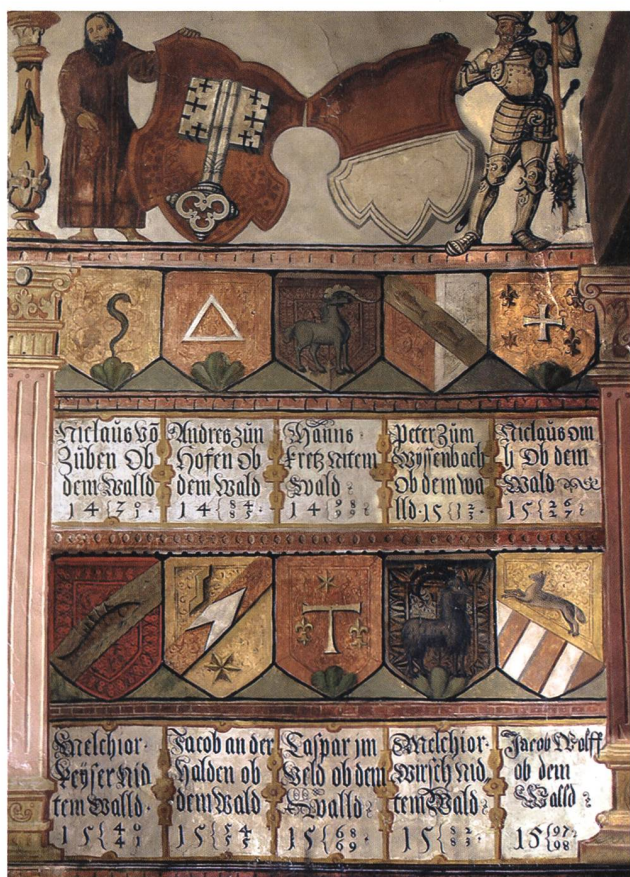 Niclaus vō
Züben Ob
dem Walld
14{ 0 1
Andres zůn
Hofen ob
dem Wald
14{84 85
Hanns
kretz Nitem
Wald
14{98 99
Peter Zum
Wyssenbach
Ob dem wa
lld. 15{12 13
Niclaus om
h Ob dem
Wald
15{26 27
Melchior
Leÿser Nid
tem Walld.
15{40 41
Jacob an der
Halden ob
dem Wald
15{54 55
Caspar im
Veld ob dem
Walld
15{68 69
Melchior
Wirsch Nid
tem Wald
15{82 83
Jacob Wolff
ob dem
Walld
15{97 98